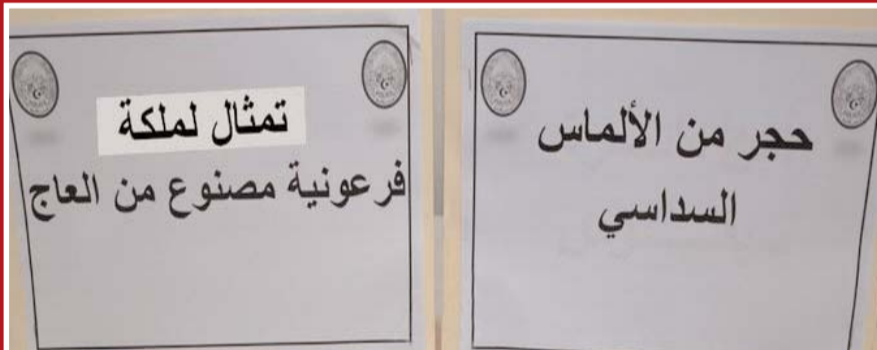 حجر من الألماس
السداسي
تمثال لملكة
فرعونية مصنوع من العاج